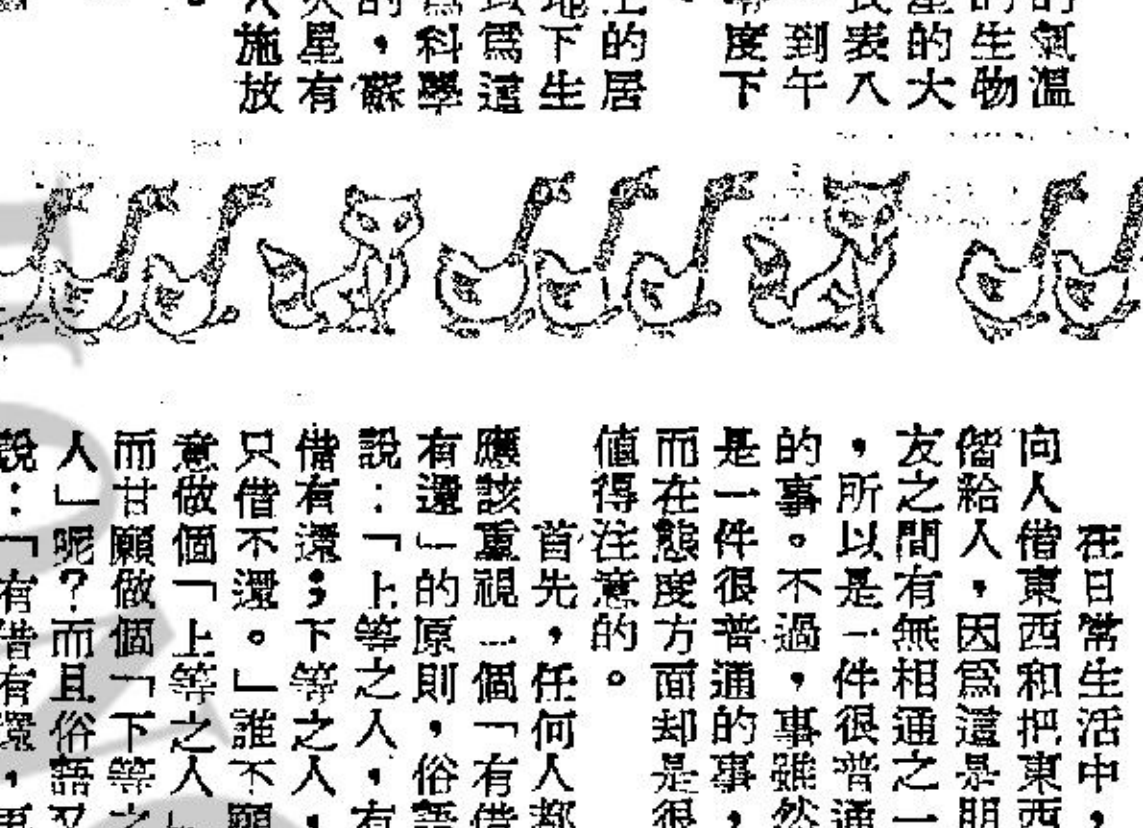 的氣溫
的生物
的大
表八
到午
度下
的居
地下生
爲這
爲科學
的，蘇
火星有
施放
在日常生活中，
向人借東西和把東西
借給人，因爲這是朋
友之間有無相通之一
，所以是一件很普通
的事。不過，事雖然
是一件很普通的事，
而在態度方面却是很
値得注意的。
首先，任何人都
應該重視一個「有借
有還」的原則，俗語
說：「上等之人，有
借有還；下等之人，
只借不還。」誰不願
意做個「上等之人」
而甘願做個「下等之
人」呢？而且俗語又
說：「有借有還，再